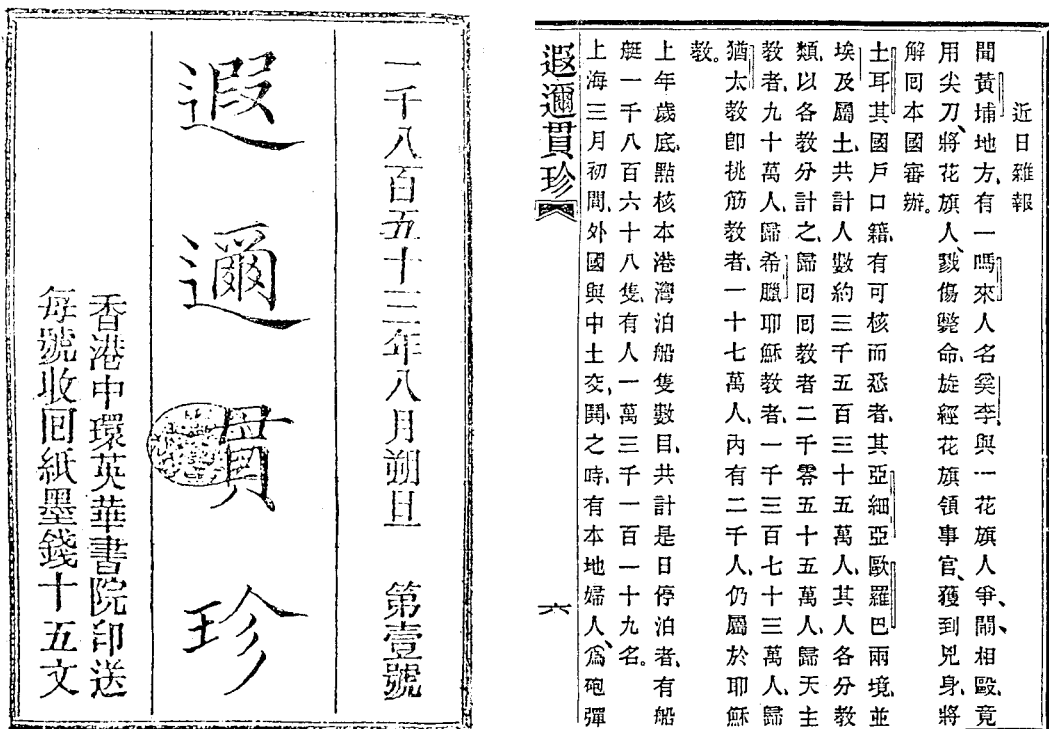 一千八百五十三年八月朔旦 第壹號
遐邇貫珍
香港中環英華書院印送
每號收囘紙墨錢十五文
近日雜報
聞黃埔地方、有一嗎來人名奚李、與一花旗人爭、鬧、相毆、竟
用尖刀、將花旗人、戮傷斃命、旋經花旗領事官、獲到兇身、將
解囘本國審辦。
土耳其國戶口籍、有可核而悉者、其亞細亞歐羅巴兩境、並
埃及屬土、共計人數約三千五百三十五萬人、其人各分教
類、以各教分計之、歸囘囘教者二千零五十五萬人、歸天主
教者、九十萬人、歸希臘耶穌教者、一千三百七十三萬人、歸
猶太教卽挑筋教者、一十七萬人、內有二千人、仍屬於耶穌
教。
上年歲底、點核本港灣泊船隻數目、共計是日停泊者、有船
艇一千八百六十八隻、有人一萬三千一百一十九名。
上海三月初間、外國與中土交鬨之時、有本地婦人、爲砲彈
遐邇貫珍
六